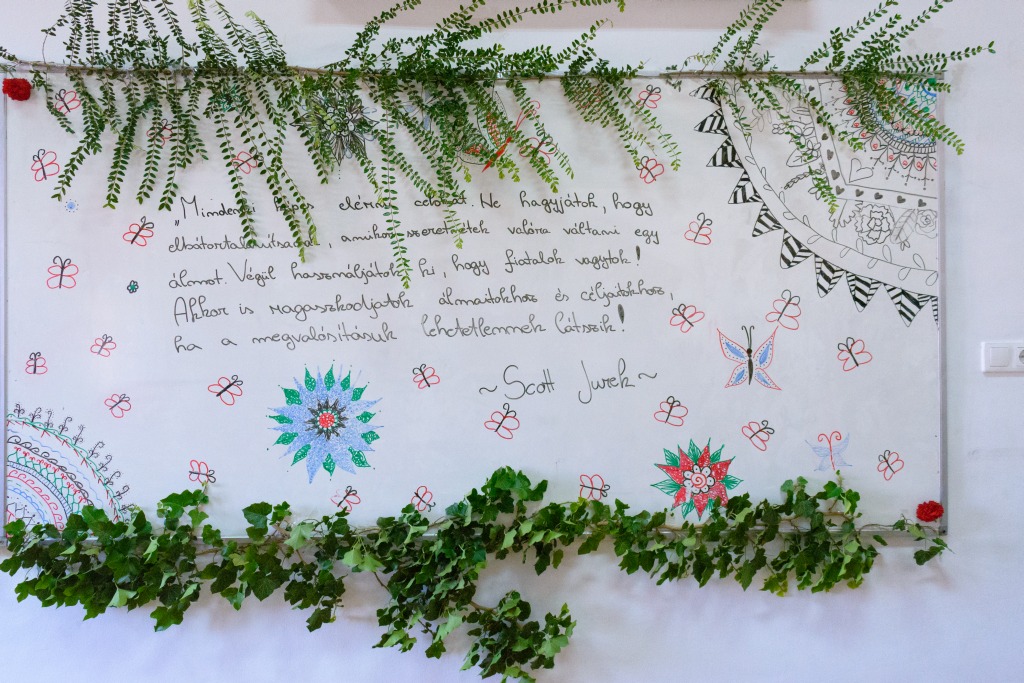 „Mindenki képes elérni célokat. Ne hagyjátok, hogy
elbátortalanítsanak, amikor szeretnétek valóra váltani egy
álmot. Végül használjátok ki, hogy fiatalok vagytok!
Akkor is ragaszkodjatok álmaitokhoz és céljaitokhoz,
ha a megvalósításuk lehetetlennek látszik!
~Scott Jurek~